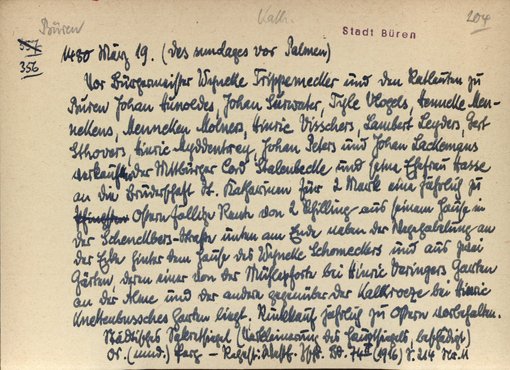 Büren
Kath.
204
Stadt Büren
357
356
1480 März 19. (des sundages vor Palmen)
Vor Bürgermeister Wyneke Trippemecker und den Ratleuten zu
Büren Johan Hinoldes, Johan Surwater, Tyle Vlogels, Henneke Men-
nekens, Menneken Molners, Hinric Visschers, Lambert Leyders, Gert
Sthovers, Hinric Myddentrey, Johan Peters und Johan Lackemans
verkauft der Mitbürger Cord Stalenbecke und seine Ehefrau Hasse
an die Bruderschaft St. Katharinen für 2 Mark eine jährlich zu
Ostern fällige Rente von 2 Schilling aus seinem Hause in
der Schendlbers-Straße unten am Ende neben der Wegegabelung an
der Ecke hinter dem Hause des Wyneke Schomeckers und aus zwei
Gärten, deren einer von der Mühlepforte bei Hinric Varingers Garten
an der Alme und der andere gegenüber der Kalkroeze bei Hinric
Knettenbussches Garten liegt. Rückkauf jährlich zu Ostern vorbehalten.
Städtisches Sekretsiegel (Verkleinerung des Hauptsiegels, beschädigt)
Or. (mnd.) Perg. - Regest: Westf. Ztft. Bd. 74 II (1916) S. 214 Nr. 11